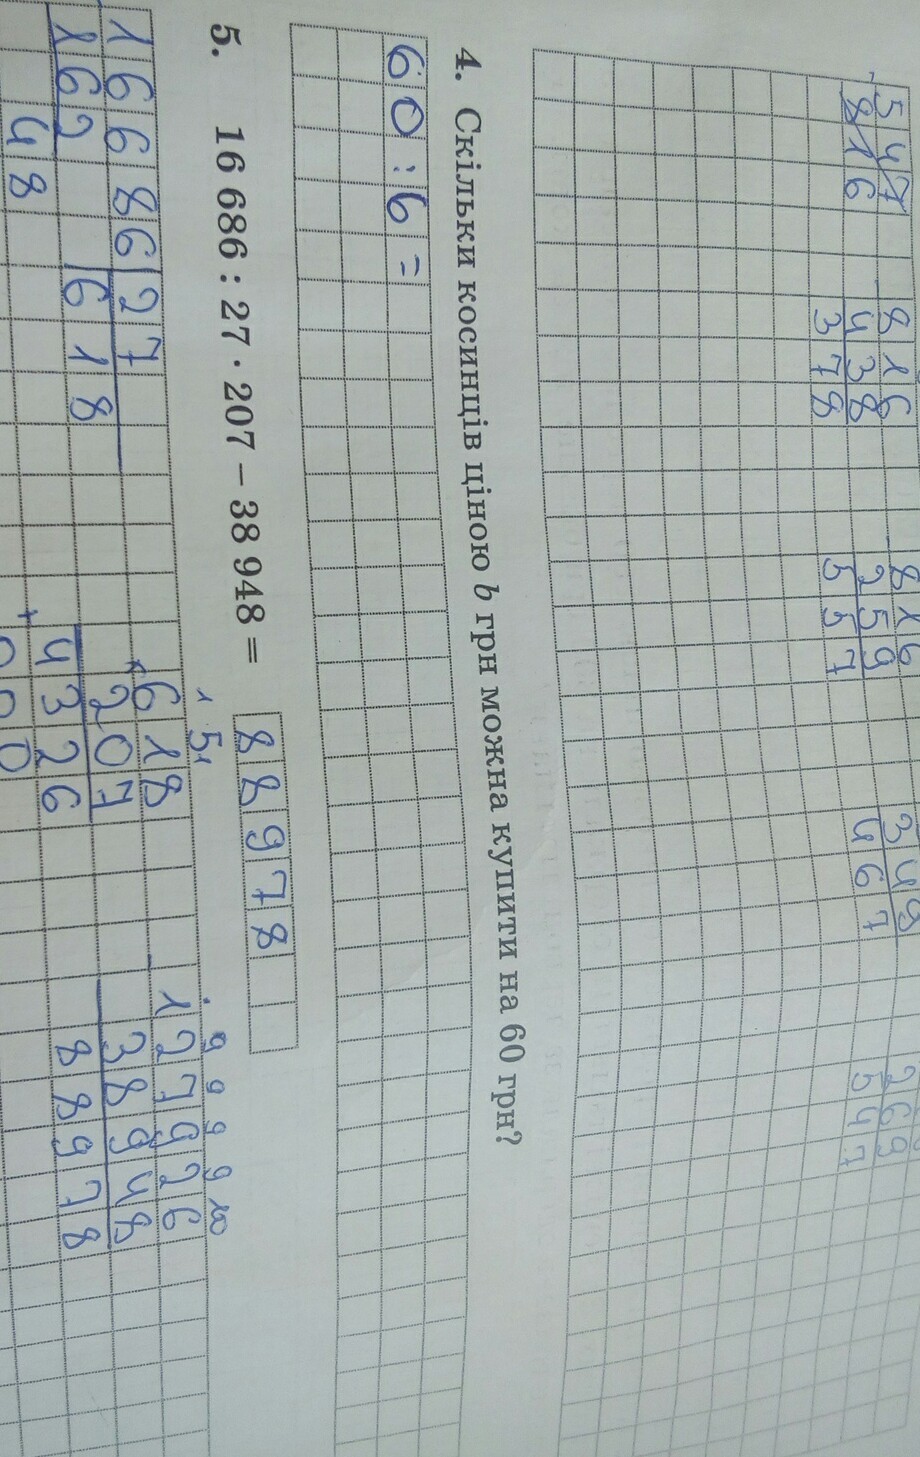 547 816 816 349 269
816 438 259 467 547
378 557
4. Скільки косинців ціною b грн можна купити на 60 грн?
60 : 6 =
5. 16 686 : 27 · 207 – 38 948 = 88978
1 51 9 9 9 9 10
16686 27 618 127926
162 618 × 207 38948
48 + 4326 88978
000